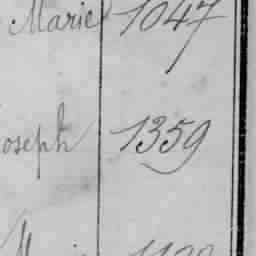 Marie 1047
oseph 1359